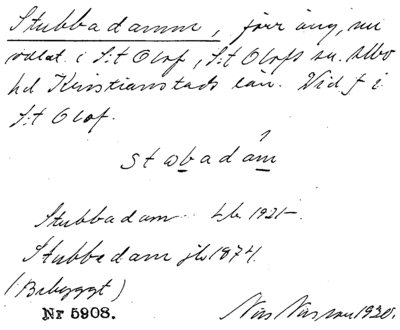 Stubbadamm, förr äng, nu
odlat. i S:t Olof, S:t Olofs sn. Albo
hd Kristianstads län. Vid f i
S:t Olof.
stabadám
Stubbadam Lb 1931-
Stubbedam jb 1874.
(Bebyggt)
Nr 5908.
1930.